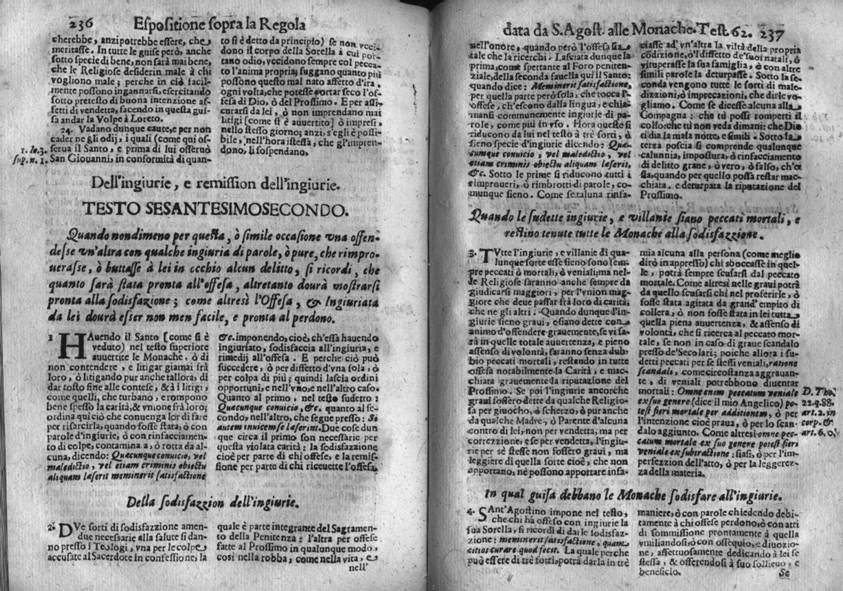 236 Espositione sopra la Regola
cherebbe, anzi potrebbe essere, che
meritasse. In tutte le guise però, anche
sotto specie di bene, non sarà mai bene,
che le Religiose desiderin male à chi
vogliono male; perche in ciò facil-
mente possono ingannarsi, esercitando
sotto pretesto di buona intentione af-
fetti di vendetta, facendo in questa gui-
sa andar la Volpe à Loreto.
24. Vadano dunque caute, e per non
cader ne gli odij, i quali [come quì os-
serua il Santo, e prima di lui l'hauea detto
San Giouanni, in conformità di quan-
1. Io. 3.
sup. n. 1.
to si è detto da principio) se non vcci-
dono il corpo della Sorella à cui por-
tano odio, vccidono sempre col pecca-
to l'anima propria; fuggano quanto più
possono questo mal nato affetto d'ira,
ogni volta, che potesse portar seco l'of-
fesa di Dio, ò del Prossimo. E per assi-
curarsi da lei, ò non imprendano mai
litigi [come si è auuertito] ò impresi,
nello stesso giorno; anzi, s'egli è possi-
bile, nell'hora istessa, che gl'impren-
dono, li sospendano.
Dell'ingiurie, e remission dell'ingiurie.
TESTO SESANTESIMOSECONDO.
Quando nondimeno per questa, ò simile occasione vna offen-
desse vn'altra con qualche ingiuria di parole, ò pure, che rimpro-
uerasse, ò buttasse à lei in occhio alcun delitto, si ricordi, che
quanto sarà stata pronta all'offesa, altretanto dourà mostrarsi
pronta alla sodisfazione; come altresì l'Offesa, & Ingiuriata
da lei dourà esser non men facile, e pronta al perdono.
1 HAuendo il Santo [come si è
veduto] nel testo superiore
auuertite le Monache, ò di
non contendere, e litigar giamai frà
loro, ò litigando pur anche tallora, di
dar tosto fine alle contese, & à i litigi;
come quelli, che turbano, e rompono
bene spesso la carità, & vnione frà loro;
ordina quì ciò che conuenga lor di fare
per risarcirla, quando fosse stata, ò con
parole d'ingiurie, ò con rinfacciamen-
to di colpe, contaminata, ò rotta da al-
cuna, dicendo: Quæcumque conuicio, vel
maledicto, vel etiam criminis obiectu
aliquam læserit meminerit satisfactione
&c. imponendo, cioè, ch'essa hauendo
ingiuriato, sodisfaccia all'ingiuria, e
rimedij all'offesa. E perche ciò può
succedere, ò per difetto d'vna sola, ò
per colpa di più; quindi lascia ordini
opportuni, e nell'vno, e nell'altro caso.
Quanto al primo, nel testo sudetto:
Quæcumque conuicio, &c. quanto al se-
condo, nell'altro, che segue presso: Si
autem inuicem se læserint. Due cose dun
que circa il primo son necessarie per
questa violata carità: la sodisfazzione
cioè per parte di chi offese, e la remis-
sione per parte di chi riceuette l'offesa.
Della sodisfazzion dell'ingiurie.
2. DVe sorti di sodisfazzione amen-
due necessarie alla salute si dan-
no presso i Teologi, vna per le colpe
accusate al Sacerdote in confessione; la
quale è parte integrante del Sagramento
della Penitenza: l'altra per offese
fatte al Prossimo in qualunque modo,
così nella robba, come nella vita, e
nell'
data da S. Agost. alle Monache. Test. 62. 237
nell'onore, quando però l'offeso sia
tale che la ricerchi. Lasciata dunque la
prima, come spettante al Foro peniten-
ziale, della seconda fauella quì il Santo:
quando dice: Meminerit satisfactione,
per quella parte però sola, che tocca l'
offese, ch'escon dalla lingua, e chia-
mansi communemente ingiurie di pa-
role, come più in vso. Hora queste si
riducono da lui nel testo à tre sorti, ò
sieno specie d'ingiurie dicendo: Quæ-
cumque conuicio, vel maledicto, vel
etiam criminis obiectu aliquam læserit,
&c. Sotto le prime si riducono tutti i
rimproueri, ò rimbrotti di parole, co-
munque sieno. Come se taluna rinfa-
ciasse ad vn'altra la viltà della propria
condizione, ò l'difetto de' suoi natali, ò
vituperasse la sua famiglia, ò con altre
simili parole la deturpasse. Sotto la se-
conda vengono tutte le sorti di male-
dizioni, ò impreccazioni, che dir le vo-
gliamo. Come se dicesse alcuna alla
Compagna: che tu possi romperti il
collo: che tù non veda dimane: che Dio
ti dia la mala notte, e simili. Sotto la
terza poscia si comprende qualunque
calunnia, impostura, ò rinfacciamento
di delitto grane, ò vero, ò falso, ch'ei
sia, quando per quello possa restar mac-
chiata, e deturpata la riputazione del
Prossimo.
Quando le sudette ingiurie, e villanie siano peccati mortali, e
restino tenute tutte le Monache alla sodisfazzione.
3. TVtte l'ingiurie, e villanie di qua-
lunque sorte esse sieno sono sem-
pre peccati ò mortali, ò veniali, ma nel-
le Religiose saranno anche sempre da
giudicarsi maggiori, per l'vnion mag-
giore che deue passar frà loro di carità,
che ne gli altri. Quando dunque d'in-
giurie sieno graui, e siano dette con a-
nimo d'offendere grauemente, si vi sa-
rà in quelle totale auuertenza, e pieno
assenso di volontà, faranno senza dub-
bio peccati mortali, restando in tutte
offesa notabilmente la Carità, e mac-
chiata grauemente la riputazione del
Prossimo. Se poi l'ingiurie ancorche
graui fossero dette da qualche Religio-
sa per giuocho, ò scherzo, ò pur anche
da qualche Madre, ò Parente d'alcuna
contro di lei, non per vendetta, ma per
correzzione, e se per vendetta, l'ingiu-
rie per sè stesse non fossero graui, ma
leggiere di quella sorte cioè, che non
apportano, nè possono apportare infa-
mia alcuna alla persona (come meglio
dirò in appresso) chi sò occasse in quel-
le, potrà sempre scusarsi dal peccato
mortale. Come altresì nelle graui potrà
da quello scusarsi chi nel proferirle, ò
fosse stata agitata da grand'empito di
collera, ò non fosse stata in lei tutta
quella piena auuertenza, & assenso di
volontà, che si ricerca al peccato mor-
tale, se non in caso di graue scandalo
presso de' Secolari; poiche allora i su-
detti peccati per se stessi veniali, ratione
scandali, come circostanza aggrauan-
te, di veniali potrebbono diuentar
mortali: Omne enim peccatum veniale
ex suo genere (dice il mio Angelico) po-
test fieri mortale per additionem, ò per
l'intenzione cioè praua, ò per lo scan-
dalo aggiunto. Come altresì omne pec-
catum mortale ex suo genere potest fieri
veniale ex subtractione: siasi, ò per l'im-
perfezzion dell'atto, ò per la leggerez-
za della materia.
D. Tho.
22. q. 88.
art. 2. in
corp. &
art. 6. o.
In qual guisa debbano le Monache sodisfare all'ingiurie.
4. SAnt'Agostino impone nel testo,
che chi hà offeso con ingiurie la
sua Sorella, si ricordi di darle sodisfaz-
zione: meminerit satisfactione, quan-
citius curare quod fecit. La quale perche
può essere di tre sorti, potrà darla in trè
maniere; ò con parole chiedendo debi-
tamente à chi offese perdono, ò con atti
di sommissione prontamente à quella
vmiliandosi, ò con ossequio, e diuozio-
ne, affettuosamente dedicando à lei se
stessa, & offerendosi à suo sollieuo, e
beneficio.
Se